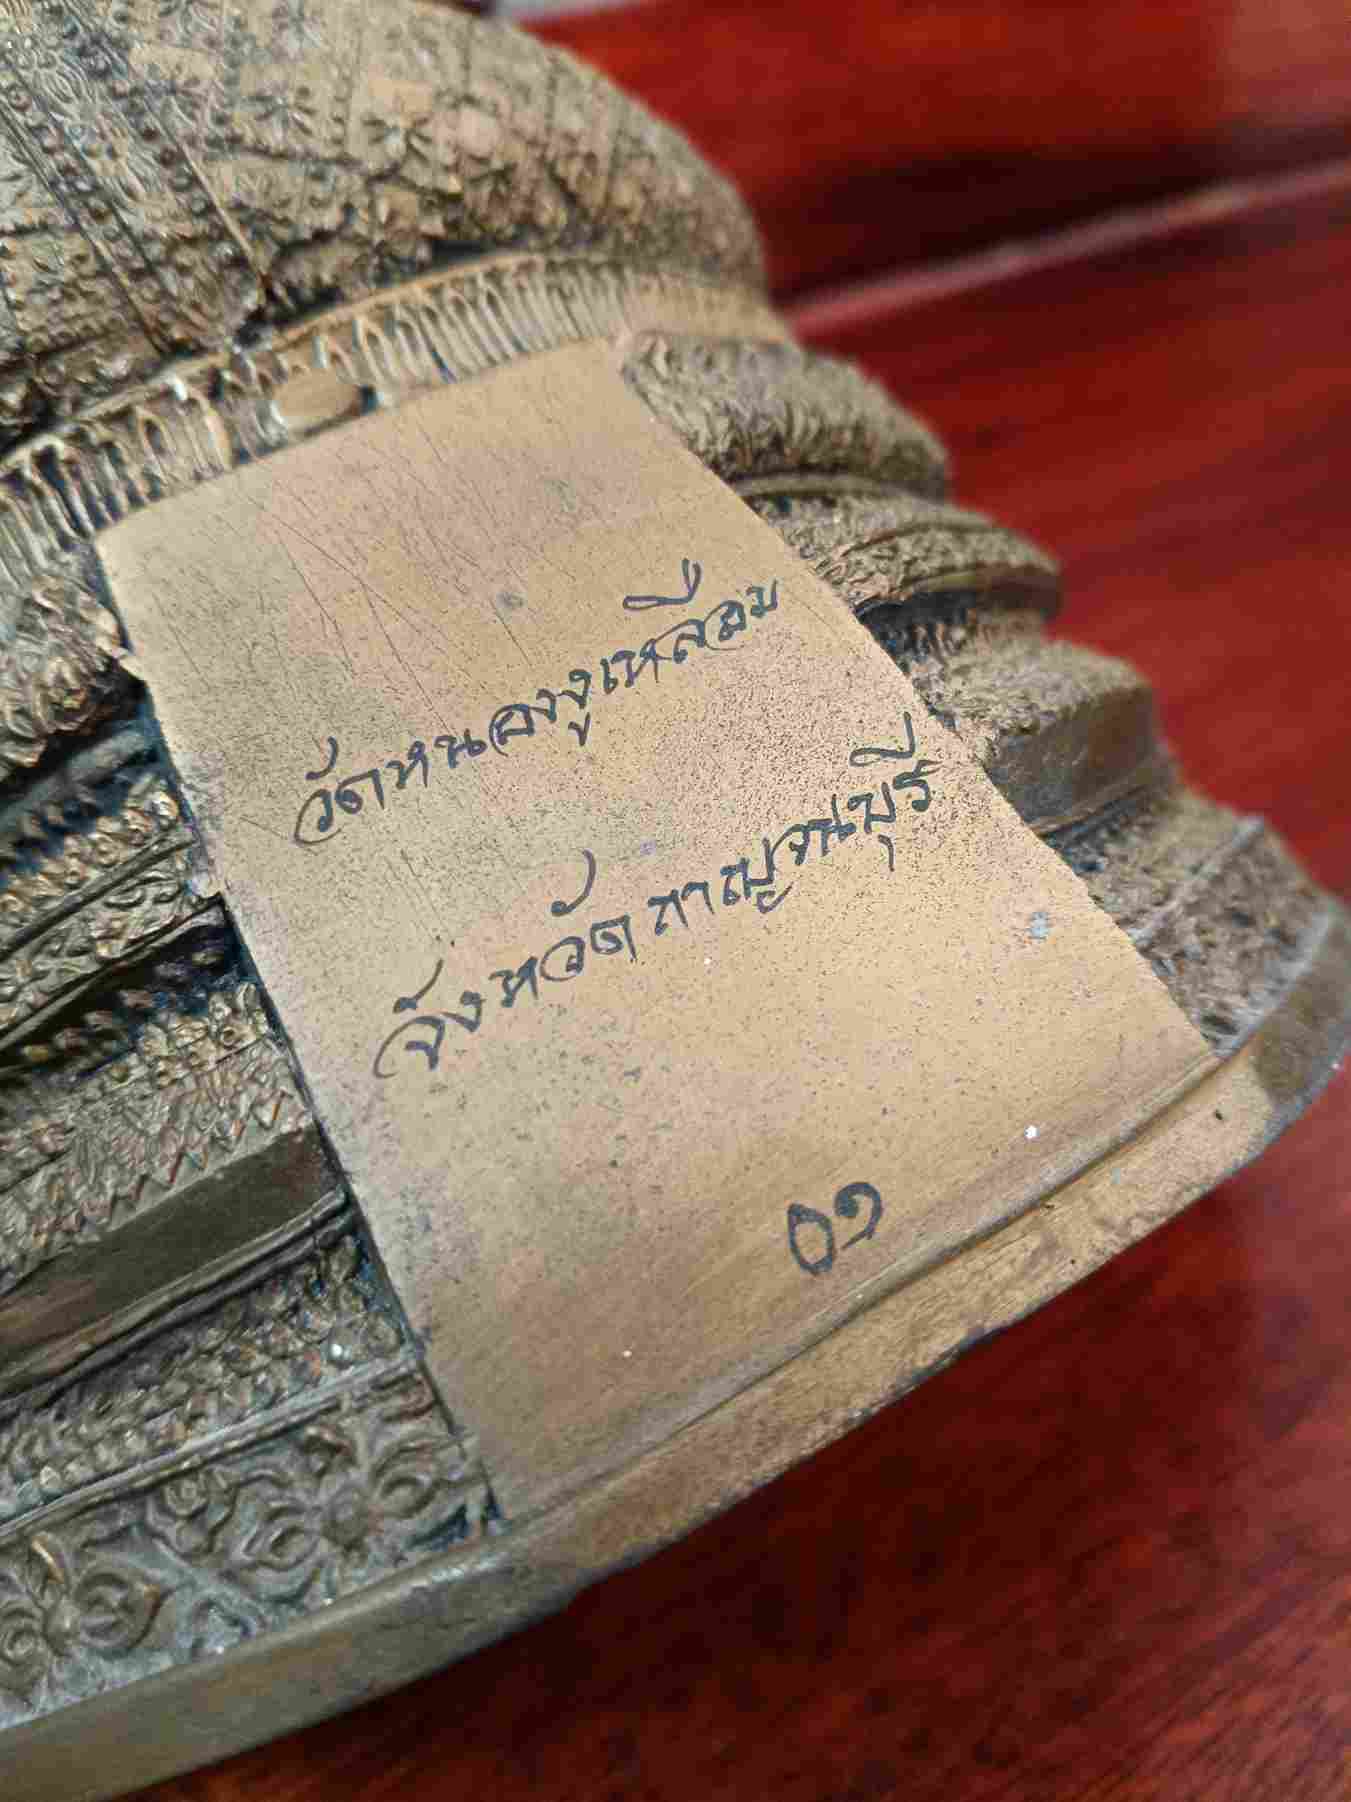 วัดหนองงูเหลือม
จังหวัดกาญจนบุรี
๐๑